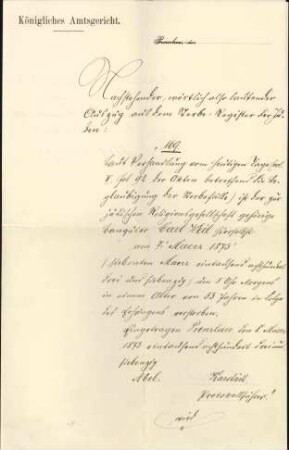 Königliches Amtsgericht.
Nachstehender, wörtlich also lautender
Auszug aus dem Sterbe-Register der Ju-
den:
"169.
Laut Verhandlung vom heutigen Tage
V. fol 92 der Akten betreffend die Be-
glaubigung der Sterbefälle) ist der zur
jüdischen Religionsgesellschaft gehörige
Banquier Carl hierselbst
am 7. Maerz 1873
(siebenten Maerz eintausend achthundert
drei und siebenzig) um 5 Uhr Morgens
in einem Alter von 53 Jahren in Folge
des verstorben.
Eingetragen Prenzlau den 8. Maerz
1873 eintausend achthundert drei und
siebenzig
Abel.
Protocollführer."
wird